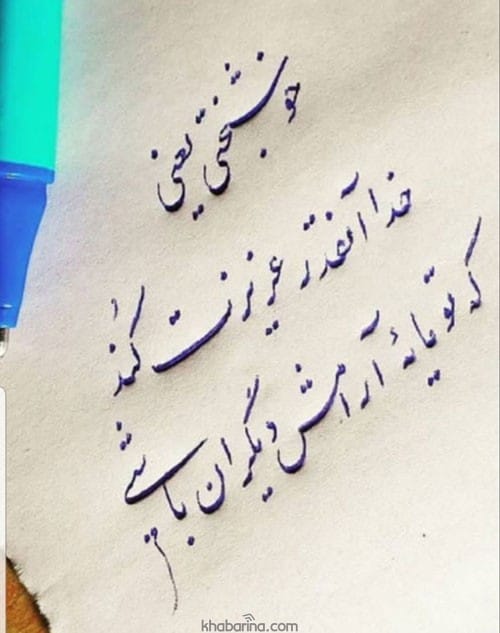 خوشبختی یعنی
خدا آنقدر عزیزت کُند
که تو مایهٔ آرامش دیگران باشی
khabarina.com